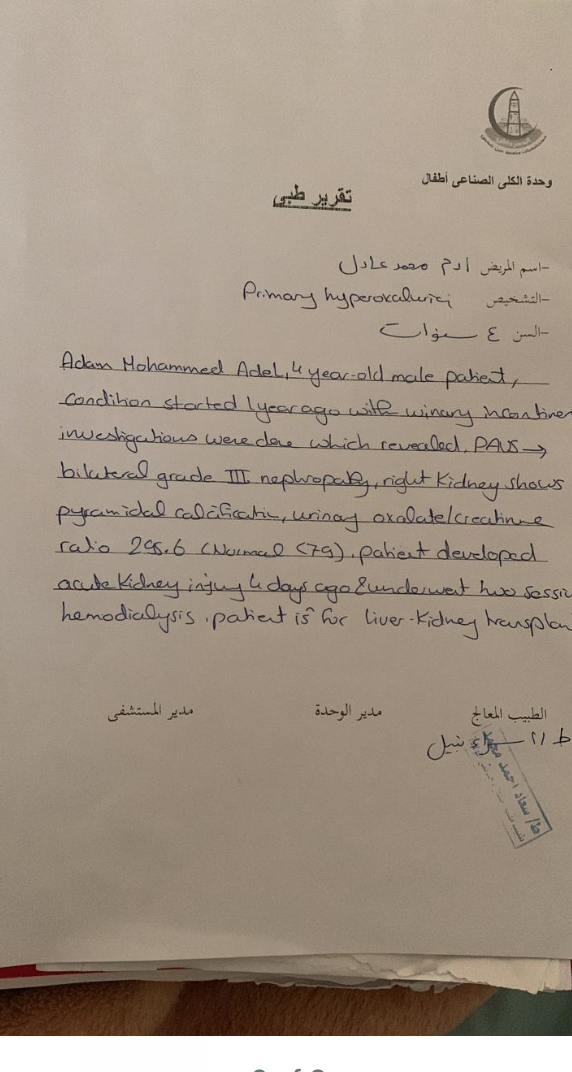 وحدة الكلى الصناعى أطفال
تقرير طبى
-اسم المريض ادم محمد عادل
-التشخيص Primary hyperoxaluria
-السن ٤ سنوات
Adam Mohammed Adel, 4 year-old male patient,
condition started 1 year ago with urinary incontinen
investigations were done which revealed, PAUS →
bilateral grade III nephropathy, right Kidney shows
pyramidal calcification, urinary oxalate/creatinine
ratio 295.6 (Normal <79). patient developed
acute Kidney injury 4 days ago & underwent two sessio
hemodialysis. patient is for liver-Kidney transplan
الطبيب المعالج
مدير الوحدة
مدير المستشفى
نبيل
ط/ سعاد احمد